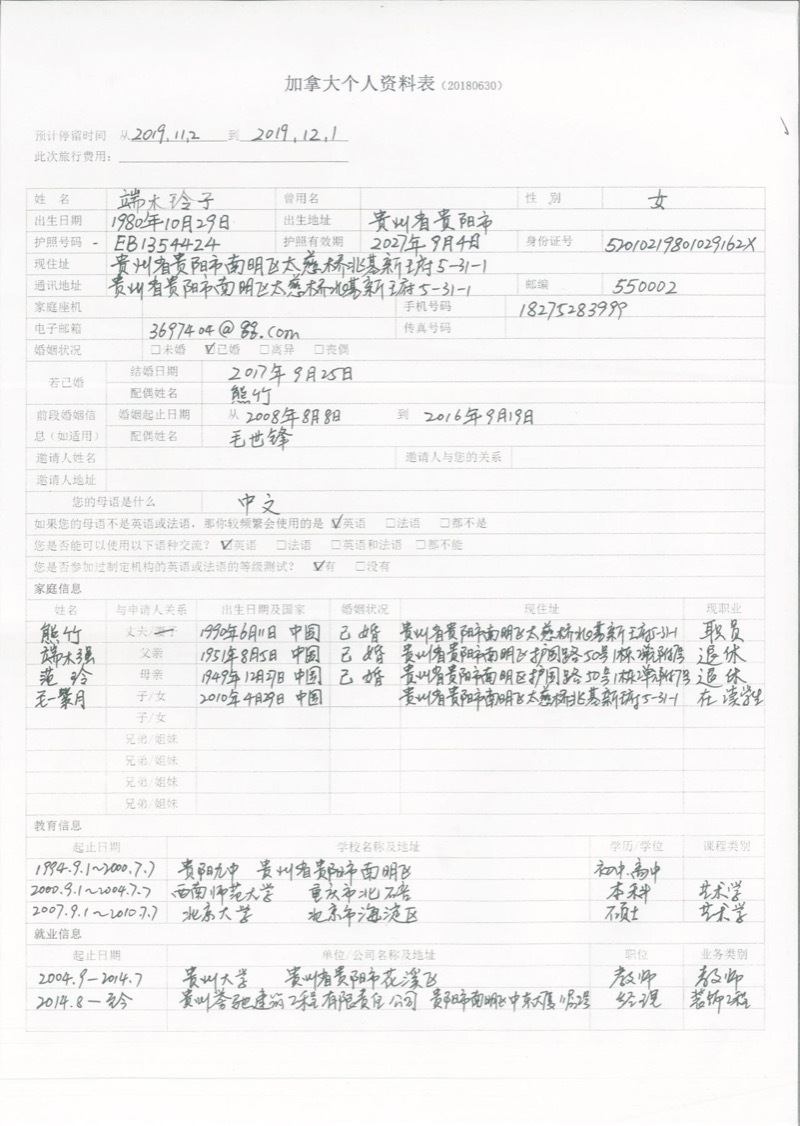 加拿大个人资料表（20180630）
预计停留时间 从 2019.11.2 到 2019.12.1
此次旅行费用：
姓 名 端木玲子 曾用名 性 别 女
出生日期 1980年10月29日 出生地址 贵州省贵阳市
护照号码 EB1354424 护照有效期 2027年9月4日 身份证号 52010219801029162X
现住址 贵州省贵阳市南明区太慈桥兆基新王府5-31-1
通讯地址 贵州省贵阳市南明区太慈桥兆基新王府5-31-1 邮编 550002
家庭座机 手机号码 18275283999
电子邮箱 3697404@qq.com 传真号码
婚姻状况 □未婚 ☑已婚 □离异 □丧偶
若已婚 结婚日期 2017年9月25日
配偶姓名 熊竹
前段婚姻信息（如适用） 婚姻起止日期 从 2008年8月8日 到 2016年9月19日
配偶姓名 毛世锋
邀请人姓名 邀请人与您的关系
邀请人地址
您的母语是什么 中文
如果您的母语不是英语或法语，那你较频繁会使用的是 ☑英语 □法语 □都不是
您是否能可以使用以下语种交流？ ☑英语 □法语 □英语和法语 □都不能
您是否参加过制定机构的英语或法语的等级测试？ ☑有 □没有
家庭信息
姓名 与申请人关系 出生日期及国家 婚姻状况 现住址 现职业
熊竹 丈夫/妻子 1990年6月11日 中国 已婚 贵州省贵阳市南明区太慈桥兆基新王府5-31-1 职员
端木强 父亲 1951年8月5日 中国 已婚 贵州省贵阳市南明区护国路50号1栋2单元 退休
范玲 母亲 1949年12月27日 中国 已婚 贵州省贵阳市南明区护国路50号1栋2单元 退休
毛一 月 子/女 2010年4月29日 中国 贵州省贵阳市南明区太慈桥兆基新王府5-31-1 在读学生
子/女
兄弟/姐妹
兄弟/姐妹
兄弟/姐妹
兄弟/姐妹
教育信息
起止日期 学校名称及地址 学历/学位 课程类别
1994.9.1~2000.7.7 贵阳九中 贵州省贵阳市南明区 初中.高中
2000.9.1~2004.7.7 西南师范大学 重庆市北碚 本科 艺术学
2007.9.1~2010.7.7 北京大学 北京市海淀区 硕士 艺术学
就业信息
起止日期 单位/公司名称及地址 职位 业务类别
2004.9—2014.7 贵州大学 贵州省贵阳市花溪区 教师 教师
2014.8—至今 贵州 驰建筑工程有限责任公司 贵阳市南明区中东大厦 经理 装饰工程